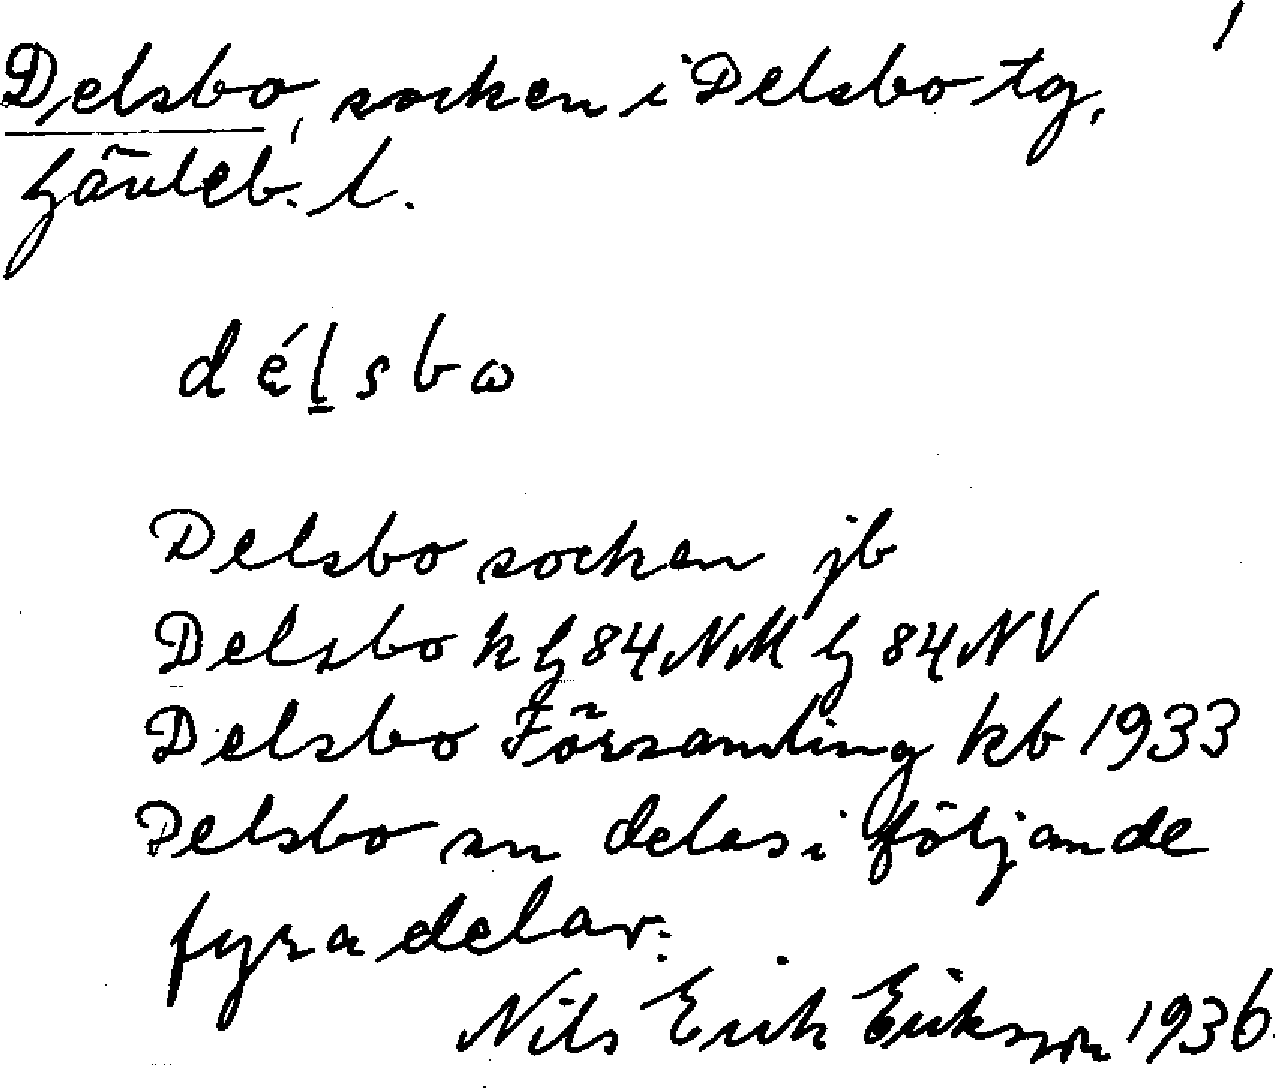 Delsbo, socken i Delsbo tg,
Gävleb. l.
délsbω
Delsbo socken jb
Delsbo k G84NM G84NV
Delsbo Församling kb 1933
Delsbo sn delas i följande
fyra delar:
Nils Erik Eriksson 1936